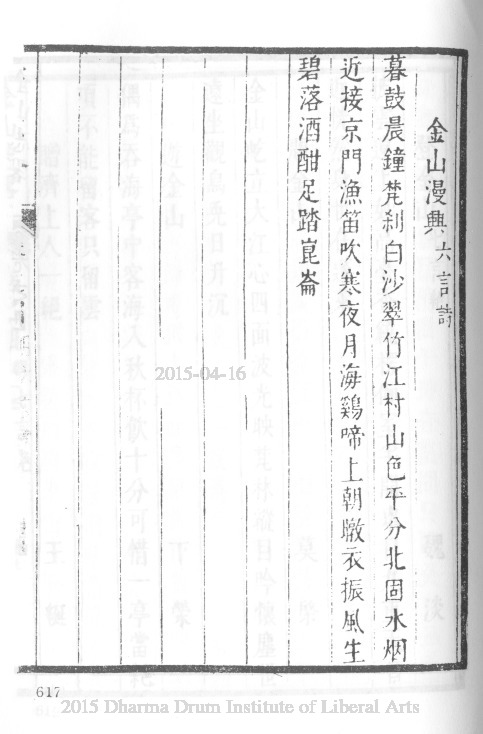 金山漫興六言詩
暮鼓晨鐘梵刹白沙翠竹江村山色平分北固水烟
近接京門漁笛吹寒夜月海鷄啼上朝暾衣振風生
碧落酒酣足踏崑崙
2015-04-16
617
2015 Dharma Drum Institute of Liberal Arts